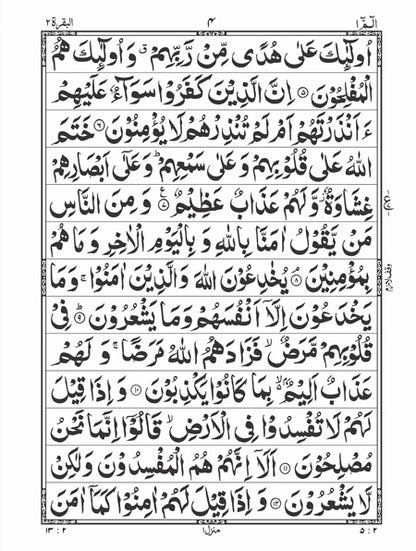 الٓمّٓ ١ ٤ البقرة ٢
اُولٰٓئِكَ عَلٰى هُدًى مِّنْ رَّبِّهِمْ ۗ وَ اُولٰٓئِكَ هُمُ
الْمُفْلِحُوْنَ ۝٥ اِنَّ الَّذِيْنَ كَفَرُوْا سَوَآءٌ عَلَيْهِمْ
ءَاَنْذَرْتَهُمْ اَمْ لَمْ تُنْذِرْهُمْ لَا يُؤْمِنُوْنَ ۝٦ خَتَمَ
اللّٰهُ عَلٰى قُلُوْبِهِمْ وَ عَلٰى سَمْعِهِمْ ؕ وَ عَلٰٓى اَبْصَارِهِمْ
غِشَاوَةٌ ؗ وَّ لَهُمْ عَذَابٌ عَظِيْمٌ ۝٧ وَ مِنَ النَّاسِ
مَنْ يَّقُوْلُ اٰمَنَّا بِاللّٰهِ وَ بِالْيَوْمِ الْاٰخِرِ وَ مَا هُمْ
بِمُؤْمِنِيْنَ ۝٨ يُخٰدِعُوْنَ اللّٰهَ وَ الَّذِيْنَ اٰمَنُوْا ۚ وَ مَا
يَخْدَعُوْنَ اِلَّاۤ اَنْفُسَهُمْ وَ مَا يَشْعُرُوْنَ ۝٩ فِيْ
قُلُوْبِهِمْ مَّرَضٌ ۙ فَزَادَهُمُ اللّٰهُ مَرَضًا ۚ وَ لَهُمْ
عَذَابٌ اَلِيْمٌۢ ۙ۬ بِمَا كَانُوْا يَكْذِبُوْنَ ۝١٠ وَ اِذَا قِيْلَ
لَهُمْ لَا تُفْسِدُوْا فِي الْاَرْضِ ۙ قَالُوْۤا اِنَّمَا نَحْنُ
مُصْلِحُوْنَ ۝١١ اَلَاۤ اِنَّهُمْ هُمُ الْمُفْسِدُوْنَ وَ لٰكِنْ
لَّا يَشْعُرُوْنَ ۝١٢ وَ اِذَا قِيْلَ لَهُمْ اٰمِنُوْا كَمَاۤ اٰمَنَ
٢ : ٥ منزل ١ ٢ : ١٣
وقف لازم